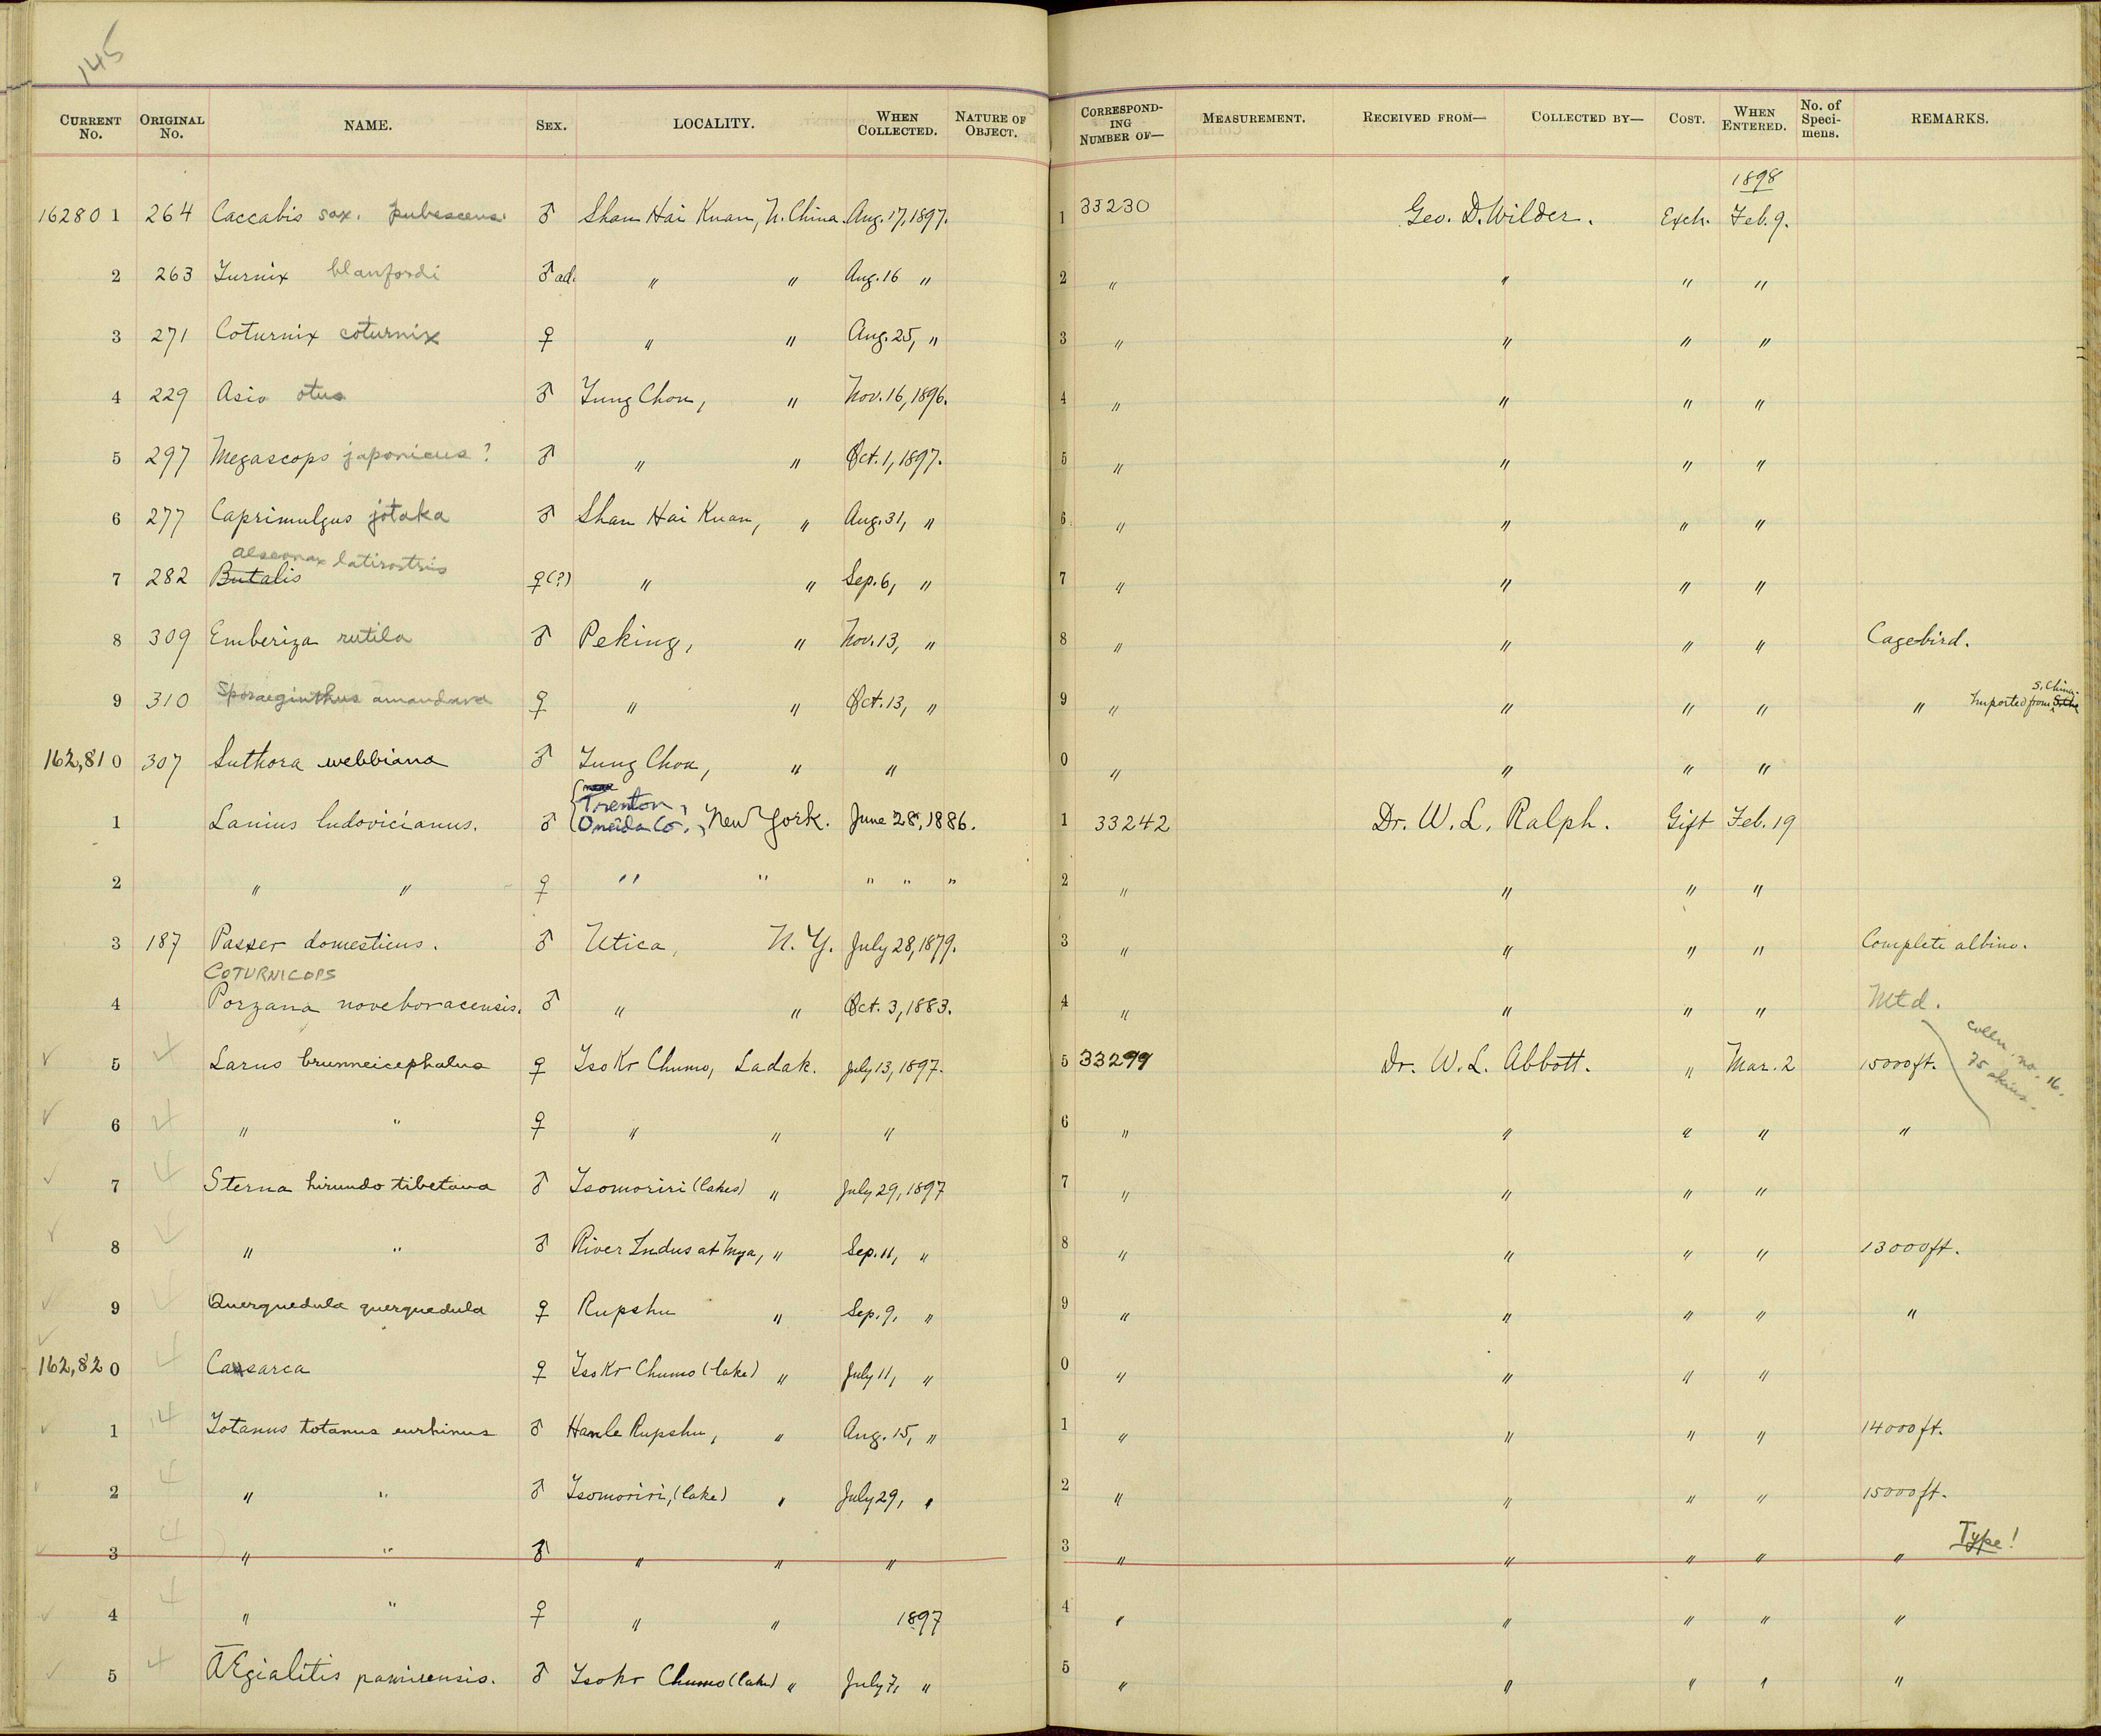 145
CURRENT No. ORIGINAL No. NAME. SEX. LOCALITY. WHEN COLLECTED. NATURE OF OBJECT. CORRESPONDING NUMBER OF— MEASUREMENT. RECEIVED FROM— COLLECTED BY— COST. WHEN ENTERED. No. of Specimens. REMARKS.
1898
162801 264 Caccabis sax. pubescens. ♂ Shan Hai Kuan, N. China. Aug. 17, 1897. 1 33230 Geo. D. Wilder. Exch. Feb. 9.
2 263 Turnix blanfordi ♂ ad. " " Aug. 16 " 2 " " " "
3 271 Coturnix coturnix ♀ " " Aug. 25, " 3 " " " "
4 229 Asio otus ♂ Tung Chou, " Nov. 16, 1896. 4 " " " "
5 297 Megascops japonicus? ♂ " " Oct. 1, 1897. 5 " " " "
6 277 Caprimulgus jotaka ♂ Shan Hai Kuan, " Aug. 31, " 6 " " " "
Alseonax latirostris
7 282 Butalis ♀(?) " " Sep. 6, " 7 " " " "
8 309 Emberiza rutila ♂ Peking, " Nov. 13, " 8 " " " " Cagebird.
S. China.
9 310 Sporaeginthus amandava ♀ " " Oct. 13, " 9 " " " " " Imported from
162,810 307 Suthora webbiana ♂ Tung Chou, " " 0 " " " "
near
Trenton,
1 Lanius ludovicianus. ♂ Oneida Co., New York. June 28, 1886. 1 33242 Dr. W. L. Ralph. Gift Feb. 19
2 " " ♀ " " " " " 2 " " " "
3 187 Passer domesticus. ♂ Utica, N. Y. July 28, 1879. 3 " " " " Complete albino.
COTURNICOPS
4 Porzana noveboracensis. ♂ " " Oct. 3, 1883. 4 " " " " Mtd.
colln. no. 16.
75 skins.
5 4 Larus brunneicephalus ♀ Tso Kr Chumo, Ladak. July 13, 1897. 5 33299 Dr. W. L. Abbott. " Mar. 2 15000 ft.
6 4 " " ♀ " " " 6 " " " " "
7 4 Sterna hirundo tibetana ♂ Tsomoriri (lakes) " July 29, 1897 7 " " " "
8 4 " " ♂ River Indus at Mya, " Sep. 11, " 8 " " " " 13000 ft.
9 Querquedula querquedula ♀ Rupshu " Sep. 9, " 9 " " " " "
162,820 4 Casarca ♀ Tso Kr Chumo (lake) " July 11, " 0 " " " "
1 4 Totanus totanus eurhinus ♂ Hanle Rupshu, " Aug. 15, " 1 " " " " 14000 ft.
2 4 " " ♂ Tsomoriri, (lake) " July 29, " 2 " " " " 15000 ft.
3 4 " " ♂ " " " 3 " " " " " Type!
4 4 " " ♀ " " 1897 4 " " " " "
5 4 Ægialitis pamirensis. ♂ Tso Kr Chumo (lake) " July 7, " 5 " " " " "